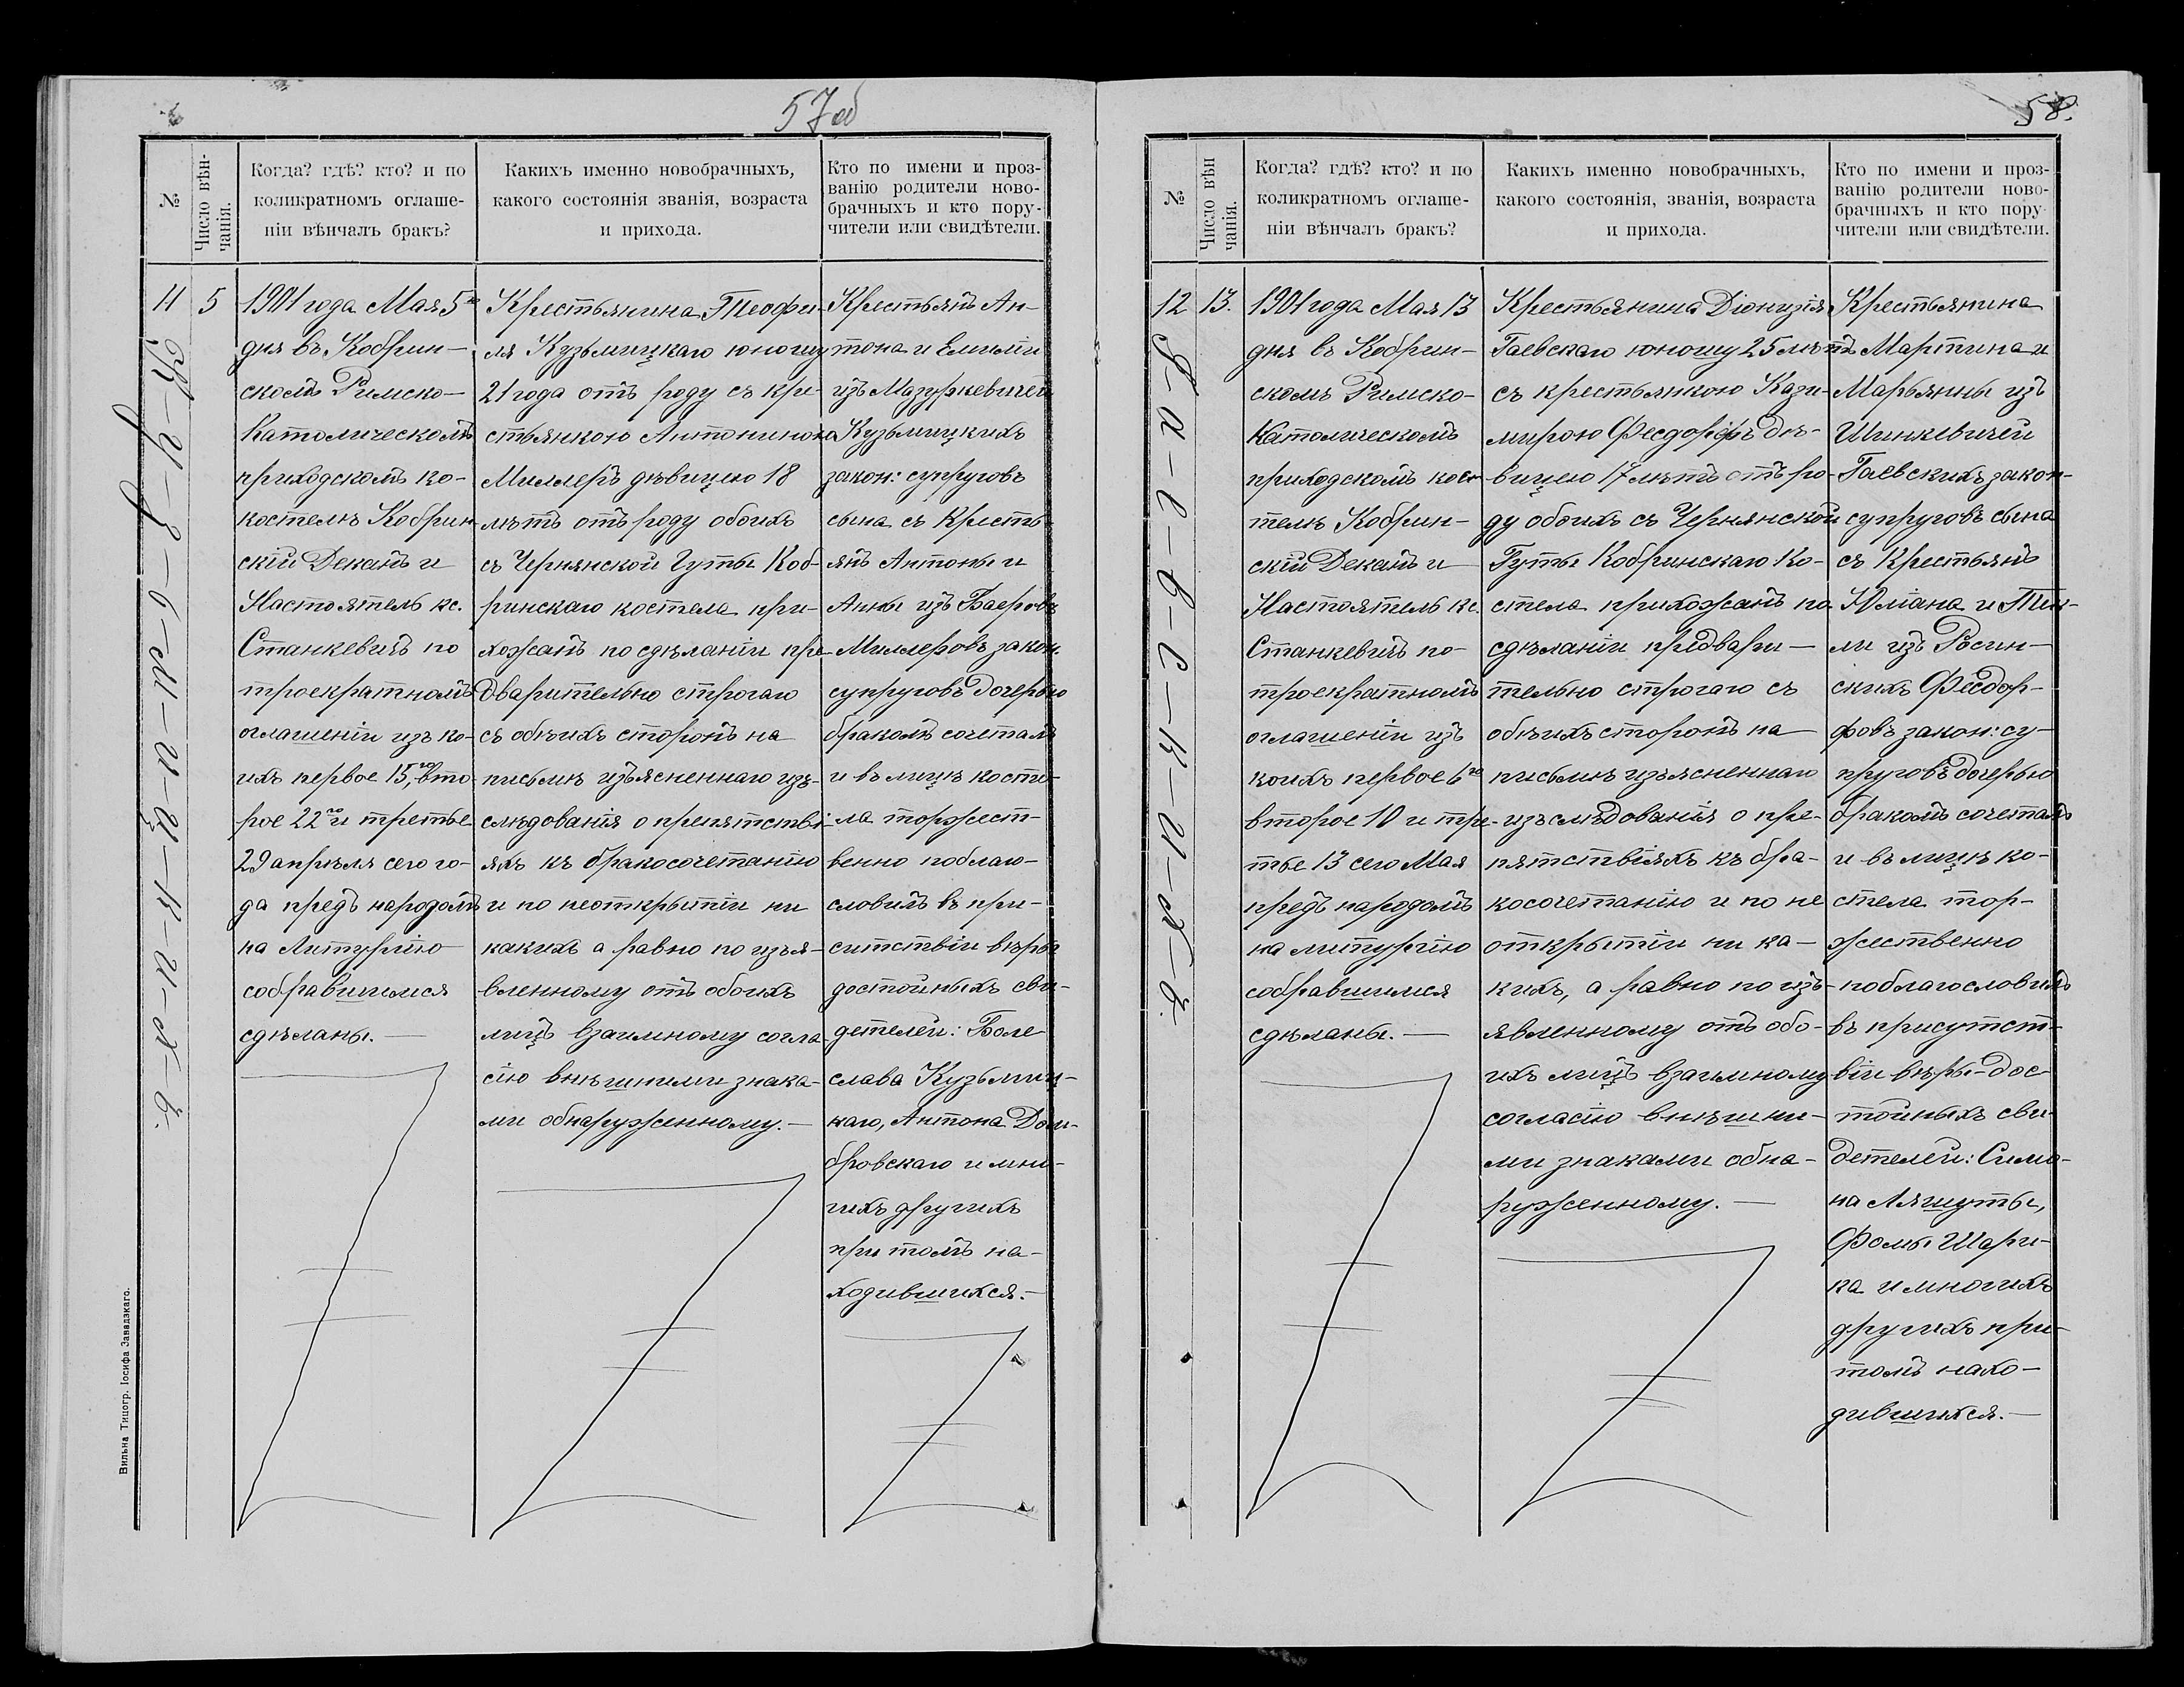 57об
№
Число вѣн-
чанія.
Когда? гдѣ? кто? и по
коликратномъ оглаше-
ніи вѣнчалъ бракъ?
Какихъ именно новобрачныхъ,
какого состоянія званія, возраста
и прихода.
Кто по имени и проз-
ванію родители ново-
брачныхъ и кто пору-
чители или свидѣтели.
11
К-у-з-ь-м-и-ц-к-и-х-ъ.
5
1901 года Мая 5го
дня въ Кобрин-
скомъ Римско-
Католическомъ
приходскомъ ко-
костелѣ Кобрин-
скій Деканъ и
Настоятель кс.
Станкевичъ по
троекратномъ
оглашеніи изъ ко-
ихъ первое 15го, вто-
рое 22го и третье
29 апрѣля сего го-
да предъ народомъ
на Литургію
собравшимся
сдѣланы.—
Крестьянина Теофи-
ля Кузьмицкаго юношу
21 года отъ роду съ кре-
стьянкою Антониною
Миллеръ дѣвицею 18
лѣтъ отъ роду обоихъ
съ Чернянской Гуты Коб-
ринскаго костела при-
хожанъ по сдѣланіи пре-
дварительно строгаго
съ обѣихъ сторонъ на
письмѣ изъясненнаго изъ-
слѣдованія о препятстві-
яхъ къ бракосочетанію
и по неоткрытіи ни
какихъ а равно по изъя-
вленному отъ обоихъ
лицъ взаимному согла-
сію внѣшними знака-
ми обнаруженному.—
Крестьянъ Ан-
тона и Емиліи
изъ Мазуркевичей
Кузьмицкихъ
закон: супруговъ
сына съ Кресть-
янъ Антоны и
Анны изъ Баеровъ
Миллеровъ закон.
супруговъ дочерью
бракомъ сочеталъ
и въ лицѣ косте-
ла торжест-
венно поблаго-
словилъ въ при-
ситствіи вѣры
достойныхъ сви-
детелей: Боле
слава Кузьмиц-
каго, Антона Дом-
бровскаго и мно-
гихъ другихъ
при томъ на-
ходившихся.—
Вильна Типогр. Іосифа Завадзкаго.
58.
№
Число вѣн
чанія.
Когда? гдѣ? кто? и по
коликратномъ оглаше-
ніи вѣнчалъ бракъ?
Какихъ именно новобрачныхъ,
какого состоянія, званія, возраста
и прихода.
Кто по имени и проз-
ванію родители ново-
брачныхъ и кто пору-
чители или свидѣтели.
12
Г-а-е-в-с-к-и-х-ъ.
13.
1901 года Мая 13
дня въ Кобрин-
скомъ Римско-
Католическомъ
приходскомъ кос-
телѣ Кобрин-
скій Деканъ и
Настоятель кс.
Станкевичъ по-
троекратномъ
оглашеніи изъ
коихъ первое 6го
второе 10 и тре-
тье 13 сего Мая
предъ народомъ
на литургію
собравшимся
сдѣланы.—
Крестьянина Діонизія
Гаевскаго юношу 25 лѣтъ
съ крестьянкою Кази-
мирою Феодорфъ дѣ-
вицею 17 лѣтъ отъ ро-
ду обоихъ съ Чернянской
Гуты Кобринскаго Ко-
стела прихожанъ по
сдѣланіи предвари-
тельно строгаго съ
обѣихъ сторонъ на
письмѣ изъясненнаго
изъслѣдованія о пре-
пятствіяхъ къ бра-
косочетанію и по не
открытіи ни ка-
кихъ, а равно по изъ-
явленному отъ обо-
ихъ лицъ взаимному
согласію внѣшни-
ми знаками обна-
руженному.—
Крестьянина
Мартина и
Марьянны изъ
Шинкевичей
Гаевскихъ закон-
супруговъ сына
съ Крестьянъ
Юліана и Тек-
ли изъ Росин-
скихъ Феодор-
фовъ закон: су-
пруговъ дочерью
бракомъ сочеталъ
и въ лицѣ ко-
стела тор-
жественно
поблагословилъ
въ присутст-
віи вѣры-дос-
тойныхъ сви-
детелей: Симо-
на Ляшуты,
Фомы Шари-
ка и многихъ
другихъ при-
томъ нахо-
дившихся.—